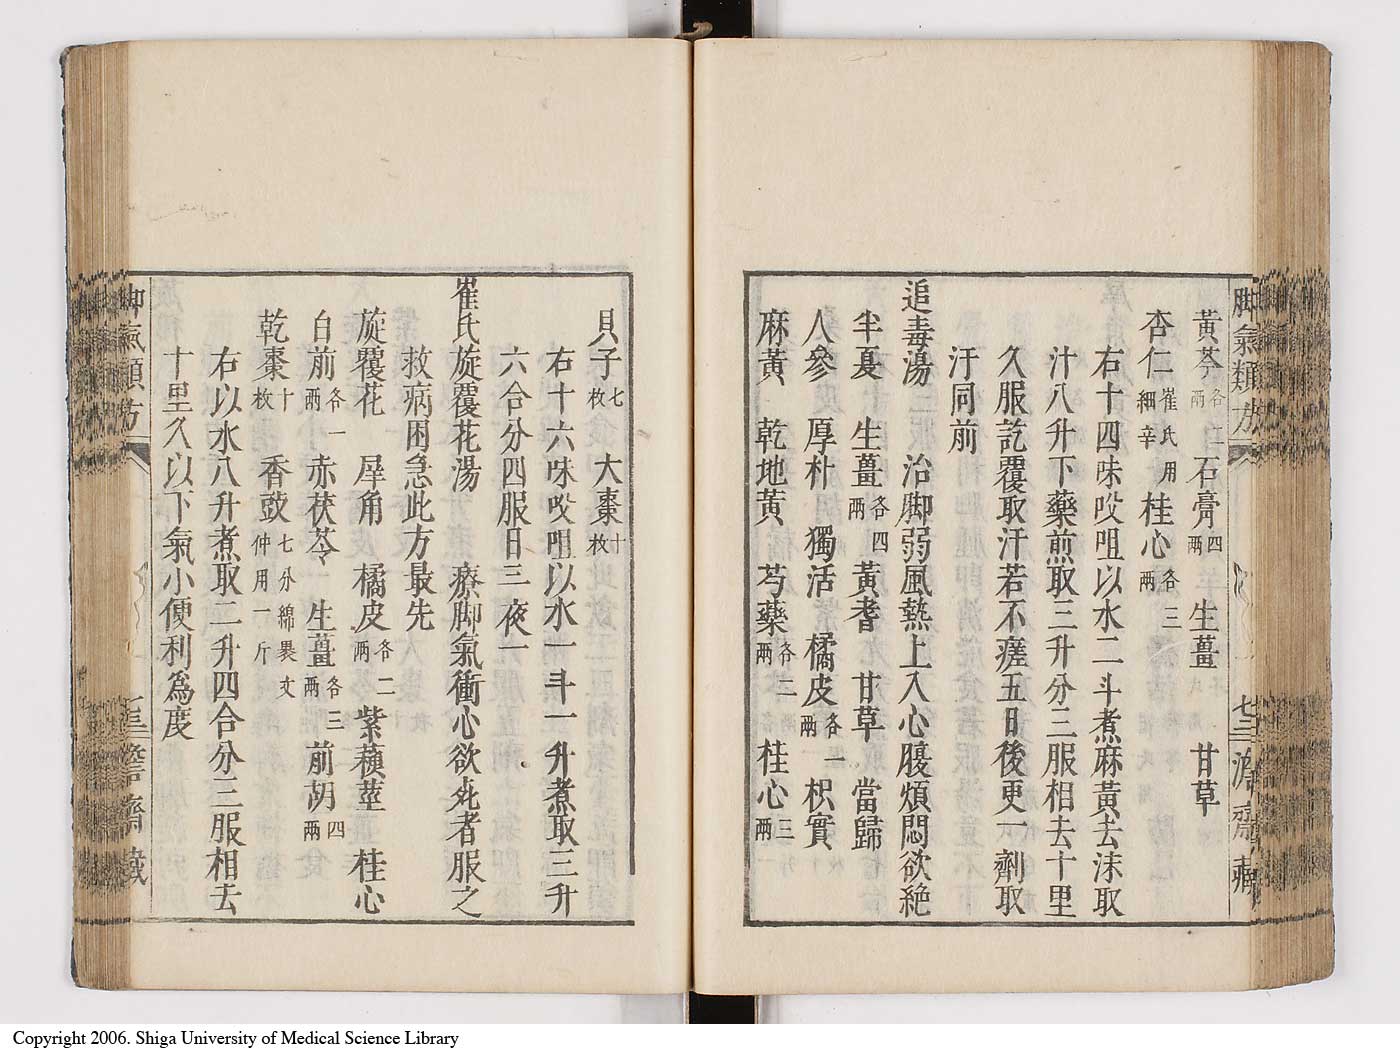 脚氣類方 七十三 澹齋藏
黄芩各二兩 石膏四兩 生薑 甘草
杏仁崔氏用細辛 桂心各三兩
右十四味㕮咀以水二斗煮麻黄去沫取
汁八升下藥煎取三升分三服相去十里
久服訖覆取汗若不瘥五日後更一劑取
汗同前
追毒湯 治脚弱風熱上入心腹煩悶欲絶
半夏 生薑各四兩 黄耆 甘草 當歸
人參 厚朴 獨活 橘皮各一兩 枳實
麻黄 乾地黄 芍藥各二兩 桂心三兩
貝子七枚 大棗十枚
右十六味㕮咀以水一斗一升煮取三升
六合分四服日三夜一
崔氏旋覆花湯 療脚氣衝心欲死者服之
救病困急此方最先
旋覆花 犀角 橘皮各二兩 紫蘓莖 桂心
白前各一兩 赤茯苓 生薑各三兩 前胡四兩
乾棗十枚 香豉七分綿裹文仲用一斤
右以水八升煮取二升四合分三服相去
十里久以下氣小便利爲度
脚氣類方
Copyright 2006. Shiga University of Medical Science Library